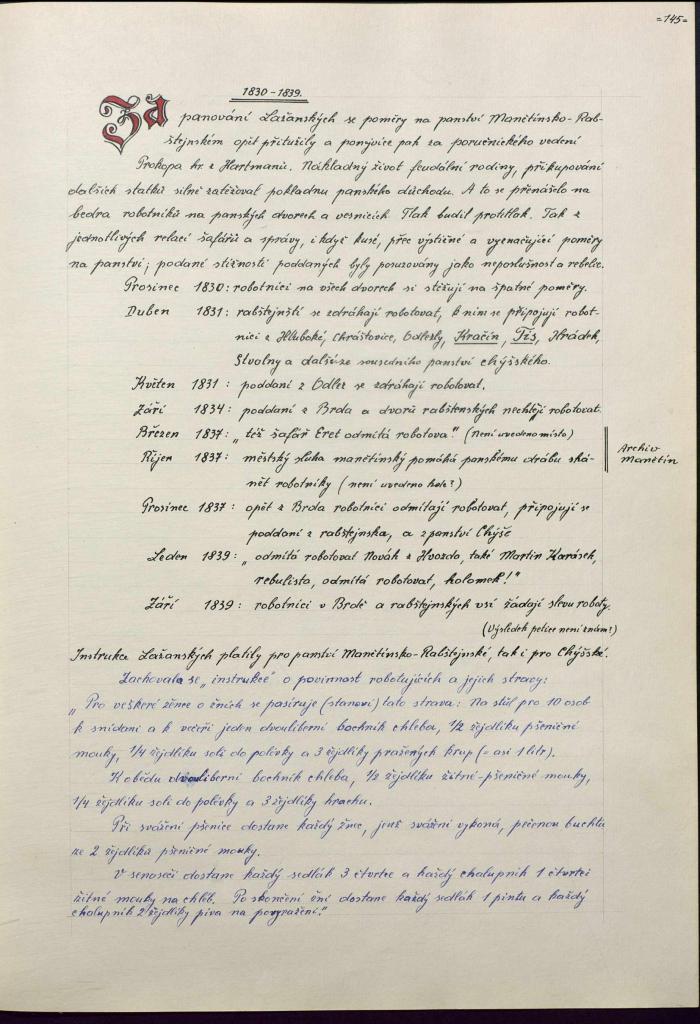 =145=
1830-1839.
Za panování Lažanských se poměry na panství Manětínsko-Rab-
štejnském opět přitužily a ponejvíce pak za poručnického vedení
Prokopa hr. z Hartmanů. Nákladný život feudální rodiny, přikupování
dalších statků silně zatěžoval pokladnu panského důchodu. A to se přenášelo na
bedra robotníků na panských dvorech a vesnicích Tlak budil protitlak. Tak z
jednotlivých relací šafářů a správy, i když kusé, přec výstižné a vyznačující poměry
na panství; podané stížnosti poddaných byly posuzovány jako neposlušnost a rebelie.
Prosinec 1830: robotníci na všech dvorech si stěžují na špatné poměry.
Duben 1831: rabštejnští se zdráhají robotovat, k nim se připojují robot-
níci z Hluboké, Chrášťovic, Odlezly, Kračín, Tis, Hrádek,
Stvolny a další ze sousedního panství chýšského.
Květen 1831: poddaní z Odlez se zdráhají robotovat.
Září 1834: poddaní z Brda a dvorů rabštenských nechtějí robotovat.
Březen 1837: „též šafář Eret odmítá robotova!" (Není uvedeno místo)
Říjen 1837: městský sluha manětínský pomáhá panskému drábu shá-
nět robotníky (není uvedeno kde?)
Prosinec 1837: opět z Brda robotníci odmítají robotovat, připojují se
poddaní z rabštejnska, a z panství Chýše
Leden 1839: „odmítá robotovat Novák z Hvozda, také Martin Karásek,
rebulista, odmítá robotovat, holomek!"
Září 1839: robotníci v Brdě a rabštejnských vsí žádají slevu roboty.
(Výsledek petice není znám?)
Archiv
Manětín
Instrukce Lažanských platily pro panství Manětínsko-Rabštejnské, tak i pro Chýšské.
Zachovala se „instrukce" o povinnost robotujících a jejich stravy:
„Pro veškeré žence o žních se pasíruje (stanoví) tato strava: Na stůl pro 10 osob
k snídani a k večeři jeden dvouliberní bochník chleba, 1/2 žejdlíku pšeničné
mouky, 1/4 žejdlíku soli do polévky a 3 žejdlíky pražených krup (= asi 1 litr).
K obědu dvouliberní bochník chleba, 1/2 žejdlíku žitné-pšeničné mouky,
1/4 žejdlíku soli do polévky a 3 žejdlíky hrachu.
Při svážení pšenice dostane každý žnec, jenž svážení vykoná, pečenou buchtu
ze 2 žejdlíků pšeničné mouky.
V senoseči dostane každý sedlák 3 čtvrtce a každý chalupník 1 čtvrtci
žitné mouky na chléb. Po skončení žní dostane každý sedlák 1 pintu a každý
chalupník 2 žejdlíky piva na povyražení."